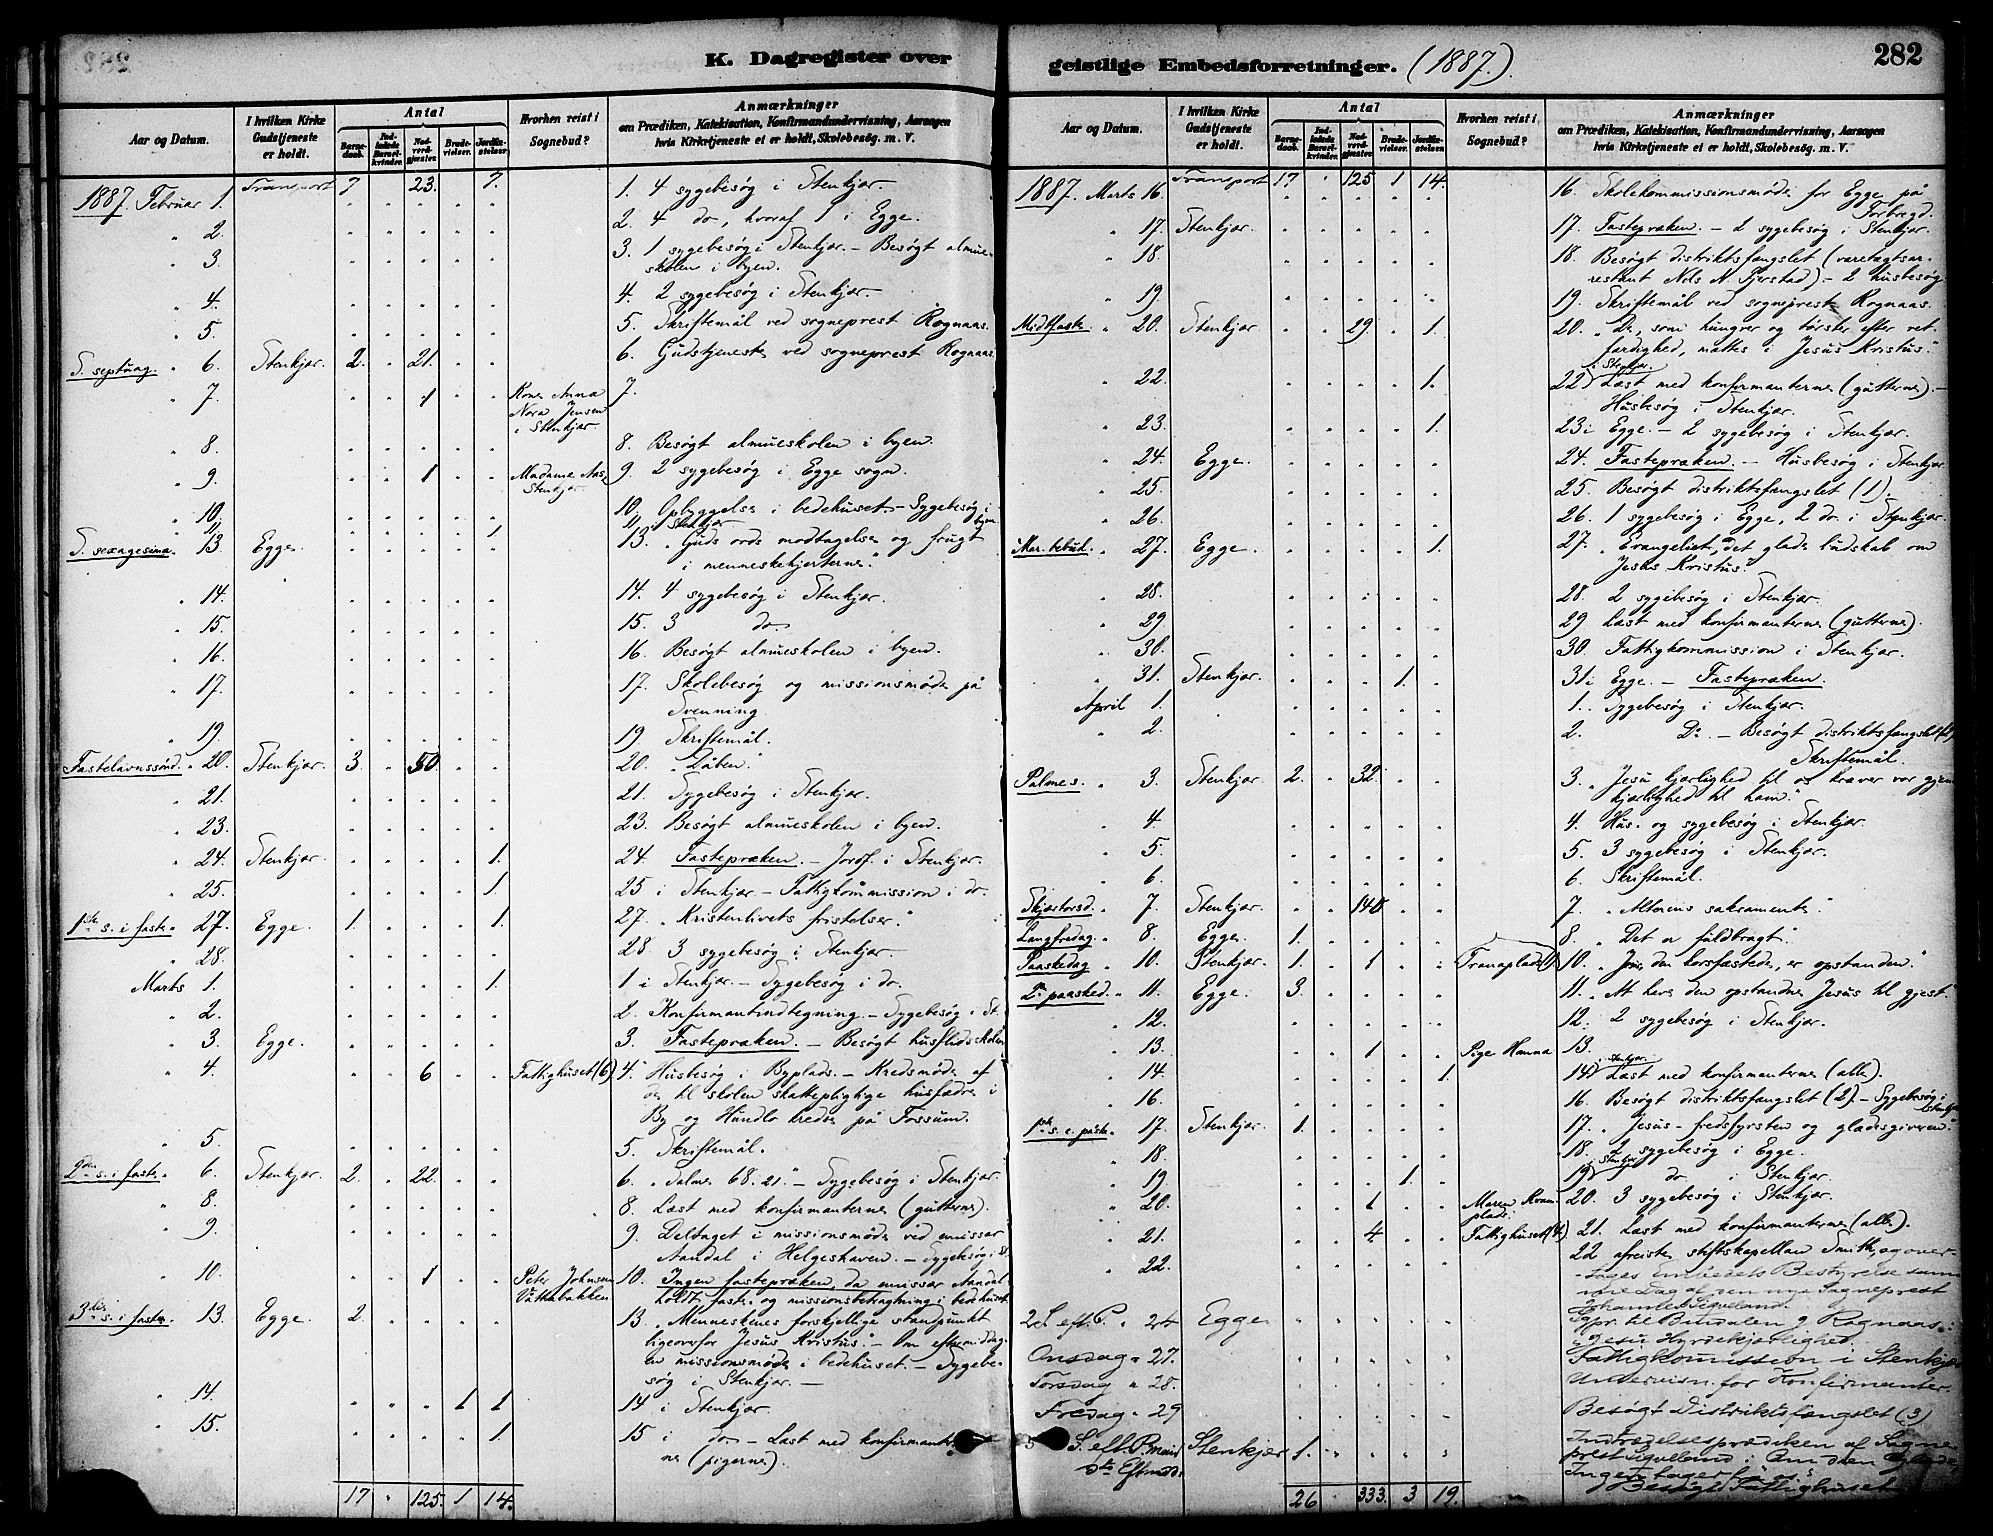 K. Dagregister over
Aar og Datum.
I hvilken Kirke Gudstjeneste er holdt.
Antal
Barnedaab.
Indledede Barselkvinder.
Nadverdgjester.
Brudevielser.
Jordfæstelser.
Hvorhen reist i Sognebud?
Anmærkninger
om Prædiken, Katekisation, Konfirmandundervisning, Aarsagen
hvis Kirketjeneste ei er holdt, Skolebesøg. m. V.
1887. Februar 1. Transport 7 23. 7. 1. 4 sygebesøg i Stenkjær.
" 2. 2. 4 do, hvoraf 1 i Egge.
" 3. 3. 1 sygebesøg i Stenkjær. – Besøgt almue-
skolen i byen.
" 4. 4. 2 sygebesøg i Stenkjær.
" 5. 5. Skriftemål ved sogneprest Rognaas.
S. septuag. " 6. Stenkjær. 2. 21. 6. Gudstjeneste ved sogneprest Rognaas.
" 7. 1 Kone Anna 7.
Nora Jensen
i Stenkjær.
" 8. 8. Besøgt almueskolen i byen.
" 9. 1 Madame Aas, 9. 2 sygebesøg i Egge sogn.
Stenkjær.
" 10. 10. Opbyggelse i bedehuset. – Sygebesøg i byen.
" 11. 1. 11. i Stenkjær
S. sexagesima. " 13. Egge. 13. "Guds ords modtagelse og frugt
i menneskehjerterne."
" 14. 14. 4 sygebesøg i Stenkjær.
" 15. 15. 3 do
" 16. 16. Besøgt almueskolen i byen.
" 17. 17. Skolebesøg og missionsmøde på
Svenning.
" 19. 19. Skriftemål.
Fastelavnssønd. " 20. Stenkjær. 3. 50. 20. "Dåben."
" 21. 21. Sygebesøg i Stenkjær.
" 23. 23. Besøgt almueskolen i byen.
" 24. Stenkjær. 1. 24. Fastepræken. – Jordf. i Stenkjær.
" 25. 1. 25 i Stenkjær. – Fattigkommission i do.
1ste s. i faste " 27. Egge. 1. 1. 27. "Kristenlivets fristelser."
" 28. 28. 3 sygebesøg i Stenkjær.
Marts 1. 1. 1 i Stenkjær. – Sygebesøg i do.
" 2. 2. Konfirmantindtegning. – Sygebesøg i St.
" 3. Egge. 3. Fastepræken. – Besøgt husflidsskolen
" 4. 6 Fattighuset (6) 4. Husbesøg i Byplads. – Kredsmøde af
de til skolen skattepligtige husfædre i
By og Hundlo kredse på Fossum.
" 5. 5. Skriftemål.
2den s. i faste. " 6. Stenkjær. 2. 22. 6. "Salme 68. 21." – Sygebesøg i Stenkjær.
" 8. 8. Læst med konfirmanterne (gutterne).
" 9. 9. Deltaget i missionsmøde ved emissær
Aandal i Helgeshaven. – Sygebesøg i S.
" 10. 1 Peter Johnsen 10. Ingen fastepræken, da emissær Aandal
Vattabakken holdt faste- og missionsbetragtning i bedehuset.
3die s. i faste. " 13. Egge. 2. 13. "Menneskenes forskjellige standpunkt
ligeoverfor Jesus Kristus." – Om eftermiddag
en missionsmøde i bedehuset. – Sygebe-
søg i Stenkjær. –
" 14. 1 1 14 i Stenkjær.
" 15. 1. 15 i do – Læst med konfirmanter-
ne (pigerne).
17 " 125. 1 14.
geistlige Embedsforretninger. (1887.)
282
Aar og Datum.
I hvilken Kirke Gudstjeneste er holdt.
Antal
Barnedaab.
Indledede Barselkvinder.
Nadverdgjester.
Brudevielser.
Jordfæstelser.
Hvorhen reist i Sognebud?
Anmærkninger
om Prædiken, Katekisation, Konfirmandundervisning, Aarsagen
hvis Kirketjeneste ei er holdt, Skolebesøg. m. V.
1887. Marts 16. Transport 17 " 125 1 14. 16. Skolekommissionsmøde for Egge på
Forbregd.
" 17. Stenkjær. 17. Fastepræken. – 2 sygebesøg i Stenkjær.
" 18. 18. Besøgt distriktsfængslet (varetægtsar-
restant Nels N. Fjerstad) – 2 husbesøg
" 19. 19. Skriftemål ved sogneprest Rognaas.
Midtfaste " 20. Stenkjær. 29. 1. 20. "De, som hungrer og tørster efter ret-
færdighed, mættes i Jesus Kristus."
" 22. 1. 22 i Stenkjær. Læst med konfirmanterne (gutterne). –
Husbesøg i Stenkjær.
" 23. 1. 23 i Egge. – 2 sygebesøg i Stenkjær.
" 24. Egge. 24. Fastepræken. – Husbesøg i Stenkjær
" 25. 25. Besøgt distriktsfængslet (1).
" 26. 26. 1 sygebesøg i Egge, 2 do. i Stenkjær.
Mar. bebud. " 27. Egge. 1. 27. "Evangeliet, det glade budskab om
Jesus Kristus."
" 28. 28. 2 sygebesøg i Stenkjær.
" 29 29 Læst med konfirmanterne (gutterne).
" 30. 30. Fattigkommission i Stenkjær.
" 31. Stenkjær. 1. 31 i Egge. – Fastepræken.
April 1. 1. Sygebesøg i Stenkjær.
" 2. 2. Do. – Besøgt distriktsfængslet
Skriftemål.
Palmes. " 3. Stenkjær. 2. 32. 3. "Jesu kjærlighed til os kræver vor gjen
kjærlighed til ham."
" 4. 4. Hus- og sygebesøg i Stenkjær.
" 5. 5. 3 sygebesøg i Stenkjær.
" 6. 6. Skriftemål.
Skjærtorsd. " 7. Stenkjær. 140 7. "Alterens sakramente."
Langfredag. " 8. Egge. 1. 8. "Det er fuldbragt."
Paaskedag " 10. Stenkjær. 1. 1 Tranaplads(1) 10. "Jesus, den korsfæstede, er opstanden."
2n paasked. " 11. Egge. 3. 11. "At have den opstandne Jesus til gjest."
" 12. 12. 2 sygebesøg i Stenkjær.
" 13. 1 Pige Hanna 13.
" 14. 1. 14 i Stenkjær. Læst med konfirmanterne (alle).
" 16. 16. Besøgt distriktsfængslet (2). – Sygebesøg i Stenkjær
1ste s. e. påske. " 17. Stenkjær. 1. 17. "Jesus – fredsfyrsten og glædesgiveren."
" 18. 18. 2 sygebesøg i Egge.
" 19. 1. 19 i Stenkjær do i Stenkjær.
" 20. 1 Maren Kvam- 20. 3 sygebesøg i Stenkjær.
plads.
" 21. 4 Fattighuset (4) 21. Læst med konfirmanterne (alle).
" 22. 22 afreiste stiftskapellan Smith, og over-
tages Embedets Bestyrelse samme
Dag af den nye Sogneprest
2 S. eft. P. " 24 Egge Spr. til Bindalen J. Rognaas:
"Jesu Hyrdekjærlighed."
Onsdag " 27. Fattigkommission i Stenkjær
Torsdag " 28. Undervisn. for Konfirmanter.
Fredag " 29 Besøgt Distriktsfængslet (3)
Stenkjær 1. Indtrædelsesprædiken af Sogne-
prest
Besøgt Fattighuset
26 333. 3 19.